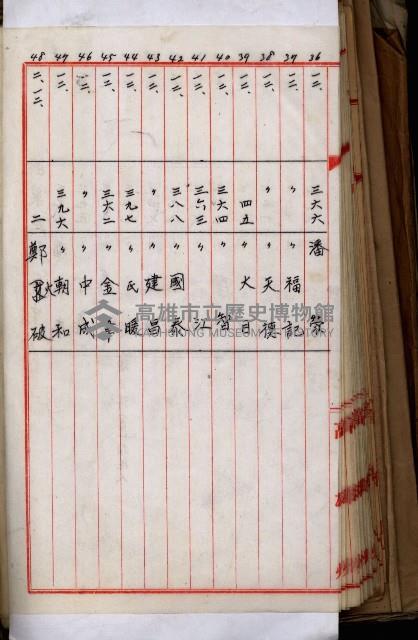 36 一二、 三六六 潘
37 一二、 〃 〃 福記
38 一二、 〃 〃 天德
39 一二、 四五 〃 大日
40 一二、 三六四 〃 智
41 一二、 三六三 〃 江
42 一二、 三八八 〃 國泰
43 一二、 〃 〃 建昌
44 一二、 三九七 〃 民暖
45 一二、 三六二 〃 金
46 一二、 〃 〃 中成
47 一二、 三九六 〃 朝和
48 二、一二、 二 鄭 破
高雄市立歷史博物館
KAOHSIUNG MUSEUM OF HISTORY